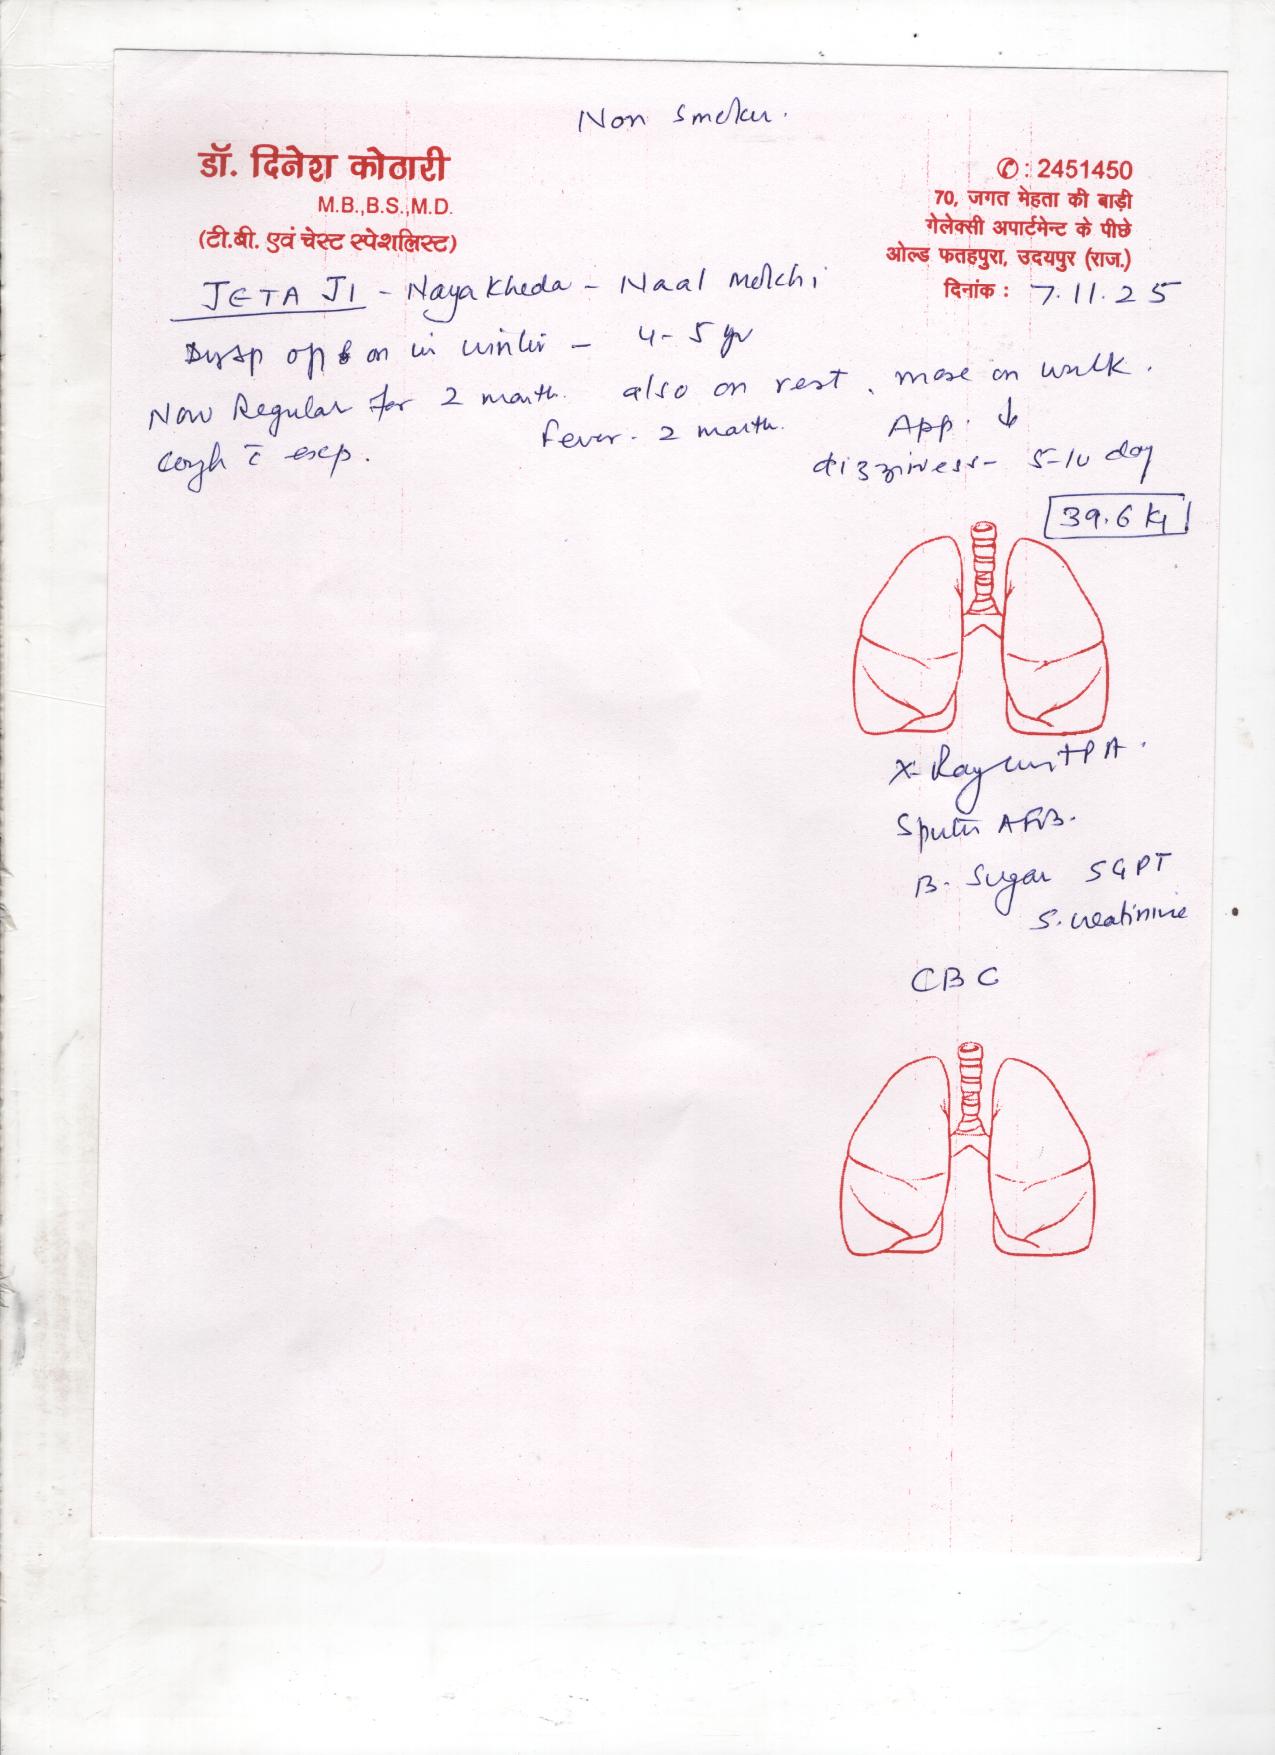 Non smoker.
डॉ. दिनेश कोठारी
M.B.,B.S.,M.D.
(टी.बी. एवं चेस्ट स्पेशलिस्ट)
✆ : 2451450
70, जगत मेहता की बाड़ी
गेलेक्सी अपार्टमेन्ट के पीछे
ओल्ड फतहपुरा, उदयपुर (राज.)
दिनांक : 7.11.25
JETA JI - Naya Kheda - Naal
on in winter - 4-5 yr
Now Regular for 2 month. also on rest. more on walk.
Cough c̄ exp. Fever - 2 month. App. ↓
dizziness - 5-10 day
39.6 Kg
X-Ray chest PA.
Sputum AFB.
B. Sugar SGPT
S. creatinine
CBC